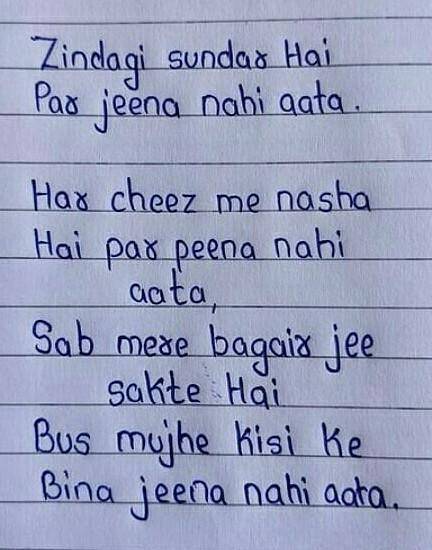 Zindagi sundar Hai
Par jeena nahi aata.
Har cheez me nasha
Hai par peena nahi
aata,
Sab mere bagair jee
sakte Hai
Bus mujhe kisi ke
Bina jeena nahi aata.